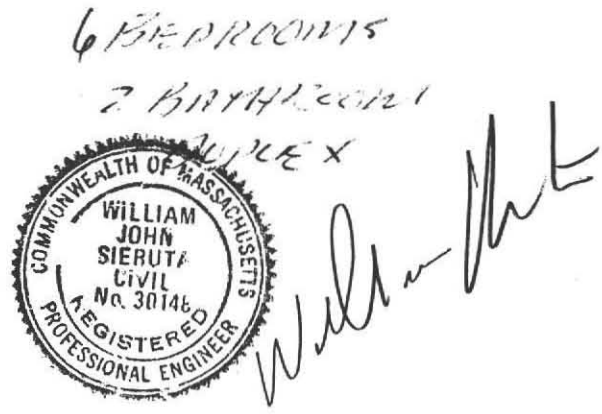 6 BEDROOMS
2 BATHROOM
DUPLEX
COMMONWEALTH OF MASSACHUSETTS
WILLIAM
JOHN
SIERUTA
CIVIL
No. 30146
REGISTERED
PROFESSIONAL ENGINEER
William